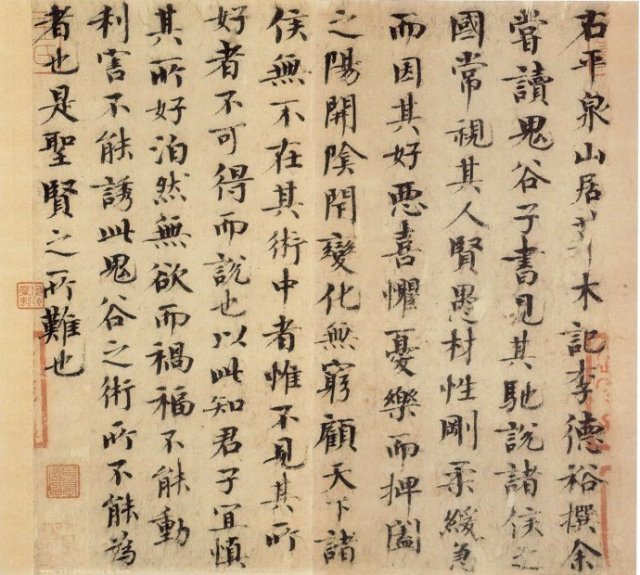 右平泉山居草木記李德裕撰余
嘗讀鬼谷子書見其馳說諸侯之
國常視其人賢愚材性剛柔緩急
而因其好惡喜懼憂樂而捭闔
之陽開陰閉變化無窮顧天下諸
侯無不在其術中者惟不見其所
好者不可得而說也以此知君子宜慎
其所好泊然無欲而禍福不能動
利害不能誘此鬼谷之術所不能為
者也是聖賢之所難也